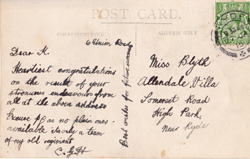 POST CARD.
Dear K.
Heartiest congratulations
on the result of your
strenuous endeavours from
all at the above address
Excuse pc as no plain ones
available
is only a team
of my old regiment
Best wishes for
Miss Blyth
Allendale Villa
Somerset Road
High Park
Near Ryde